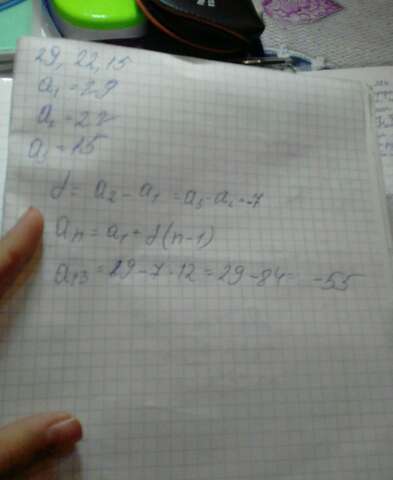 29, 22, 15
a₁ = 29
a₂ = 22
a₃ = 15
d = a₂ - a₁ = a₃ - a₂ = -7
aₙ = a₁ + d(n-1)
a₁₃ = 29 - 7 · 12 = 29 - 84 = -55